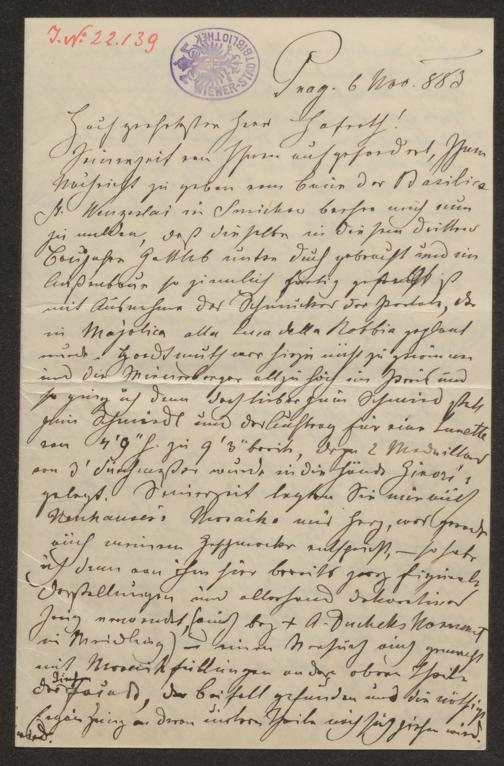 J. N: 22.139
WIENER-STADTBIBLIOTHEK
Prag. 6 Nov. 883
Hochgeehrtester Herr Hofrath!
Seinerzeit von Ihnen aufgefordert, Ihnen
Nachricht zu geben vom Baue der Basilica
St. Wenzeslai in Smichov beehre mich nun
zu melden, daß dieselbe in diesem dritten
Baujahre Gottlob unter Dach gebracht und im
Außenbaue so ziemlich fertig gestellt ist
mit Ausnahme des Schmuckes der Portale, der
in Majolica alla Luca della Robbia geplant
wurde. Hardtmuth war hiezu nicht zu gewinnen
und die Wienerberger allzu hoch im Preis und
so ging ich denn doch lieber zum Schmied statt
zum Schmiedl und der Auftrag für eine Lunette
von 4' 9" h. zu 9' 3" breit, dazu 2 Medaillons
von 3' Durchmesser wurde in die Hände Ginori's
gelegt. Seinerzeit legten Sie mir auch
Neuhauser's Mosaike ans Herz, was gerade
auch meinem Geschmacke entspricht, – so habe
ich denn von ihm hier bereits ganz figurale
Darstellungen und allerhand dekorativen
Zeug verwendet, (auch bez. A. Ducheks Monument
in Meidling) – einen Versuch auch gemacht
mit Mosaikfüllungen an der oberen Theile
der Façade, der Beifall gefunden und die nöthige
Ergänzung an deren unteren Theile nach sich ziehen wird.